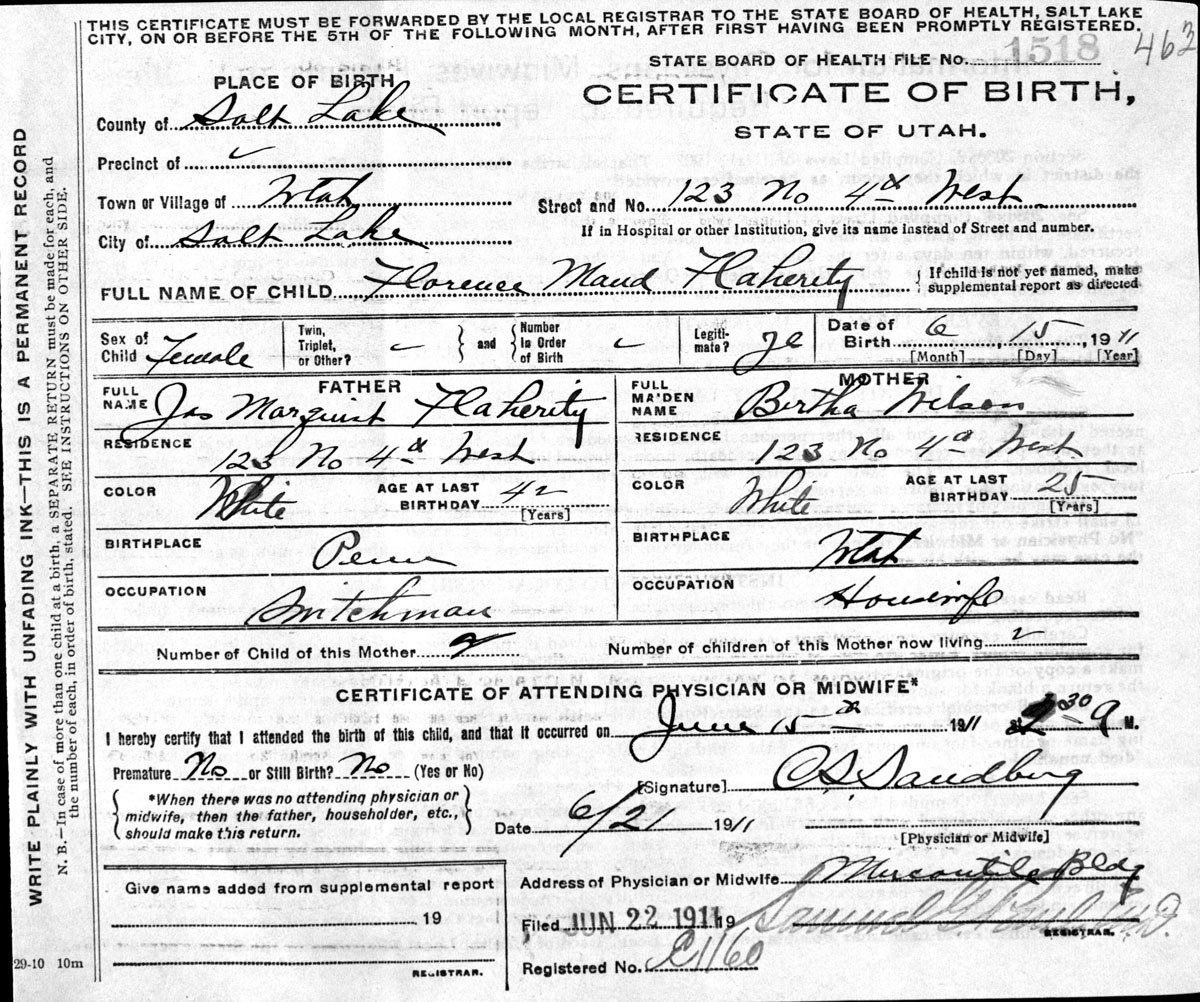 THIS CERTIFICATE MUST BE FORWARDED BY THE LOCAL REGISTRAR TO THE STATE BOARD OF HEALTH, SALT LAKE
CITY, ON OR BEFORE THE 5TH OF THE FOLLOWING MONTH, AFTER FIRST HAVING BEEN PROMPTLY REGISTERED.
463
STATE BOARD OF HEALTH FILE No. 1518
PLACE OF BIRTH
CERTIFICATE OF BIRTH,
STATE OF UTAH.
County of Salt Lake
Precinct of ✓
Town or Village of Utah
Street and No. 123 No 4th West
City of Salt Lake
If in Hospital or other Institution, give its name instead of Street and number.
FULL NAME OF CHILD Florence Maud Flaherity { If child is not yet named, make
supplemental report as directed
Sex of Child Female
Twin, Triplet, or Other? –
} and {
Number In Order of Birth –
Legitimate? ye
Date of Birth 6 15, 1911
[Month] [Day] [Year]
FATHER
FULL NAME Jas Marquist Flaherity
RESIDENCE
123 No 4th West
COLOR White
AGE AT LAST BIRTHDAY 42
[Years]
BIRTHPLACE
Penn
OCCUPATION
Switchman
MOTHER
FULL MAIDEN NAME Bertha Wilson
RESIDENCE
123 No 4th West
COLOR White
AGE AT LAST BIRTHDAY 25
[Years]
BIRTHPLACE
Utah
OCCUPATION
Housewife
Number of Child of this Mother 2
Number of children of this Mother now living 2
CERTIFICATE OF ATTENDING PHYSICIAN OR MIDWIFE*
I hereby certify that I attended the birth of this child, and that it occurred on June 15th 1911 at 2:30 A M.
Premature No or Still Birth? No (Yes or No)
[Signature] C S Sandberg
{ *When there was no attending physician or
midwife, then the father, householder, etc.,
should make this return. }
Date 6/21 1911
[Physician or Midwife]
Give name added from supplemental report
19
REGISTRAR.
Address of Physician or Midwife Mercantile Bldg
Filed JUN 22 1911 19 Samuel G. M.D.
REGISTRAR.
Registered No. C1160
29-10 10m
WRITE PLAINLY WITH UNFADING INK—THIS IS A PERMANENT RECORD
N. B.—In case of more than one child at a birth, a SEPARATE RETURN must be made for each, and
the number of each, in order of birth, stated. SEE INSTRUCTIONS ON OTHER SIDE.